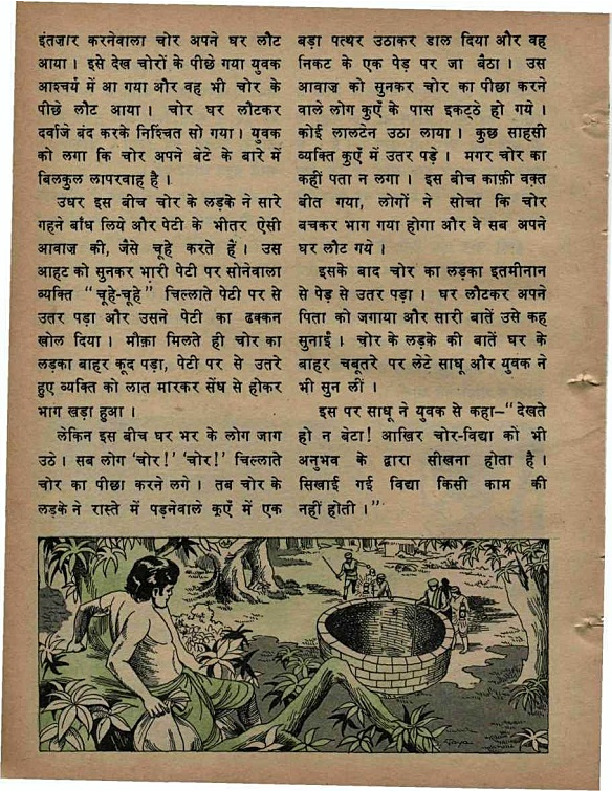 इंतज़ार करनेवाला चोर अपने घर लौट
आया। इसे देख चोरों के पीछे गया युवक
आश्चर्य में आ गया और वह भी चोर के
पीछे लौट आया। चोर घर लौटकर
दर्वाजे बंद करके निश्चिंत सो गया। युवक
को लगा कि चोर अपने बेटे के बारे में
बिलकुल लापरवाह है।
उधर इस बीच चोर के लड़के ने सारे
गहने बाँध लिये और पेटी के भीतर ऐसी
आवाज़ की, जैसे चूहे करते हैं। उस
आहट को सुनकर भारी पेटी पर सोनेवाला
व्यक्ति “चूहे-चूहे” चिल्लाते पेटी पर से
उतर पड़ा और उसने पेटी का ढक्कन
खोल दिया। मौक़ा मिलते ही चोर का
लड़का बाहर कूद पड़ा, पेटी पर से उतरे
हुए व्यक्ति को लात मारकर सेंध से होकर
भाग खड़ा हुआ।
लेकिन इस बीच घर भर के लोग जाग
उठे। सब लोग ‘चोर!’ ‘चोर!’ चिल्लाते
चोर का पीछा करने लगे। तब चोर के
लड़के ने रास्ते में पड़नेवाले कूएँ में एक
बड़ा पत्थर उठाकर डाल दिया और वह
निकट के एक पेड़ पर जा बैठा। उस
आवाज़ को सुनकर चोर का पीछा करने
वाले लोग कुएँ के पास इकट्ठे हो गये।
कोई लालटेन उठा लाया। कुछ साहसी
व्यक्ति कुएँ में उतर पड़े। मगर चोर का
कहीं पता न लगा। इस बीच काफ़ी वक़्त
बीत गया, लोगों ने सोचा कि चोर
बचकर भाग गया होगा और वे सब अपने
घर लौट गये।
इसके बाद चोर का लड़का इतमीनान
से पेड़ से उतर पड़ा। घर लौटकर अपने
पिता को जगाया और सारी बातें उसे कह
सुनाईं। चोर के लड़के की बातें घर के
बाहर चबूतरे पर लेटे साधू और युवक ने
भी सुन लीं।
इस पर साधू ने युवक से कहा—“देखते
हो न बेटा! आखिर चोर-विद्या को भी
अनुभव के द्वारा सीखना होता है।
सिखाई गई विद्या किसी काम की
नहीं होती।”